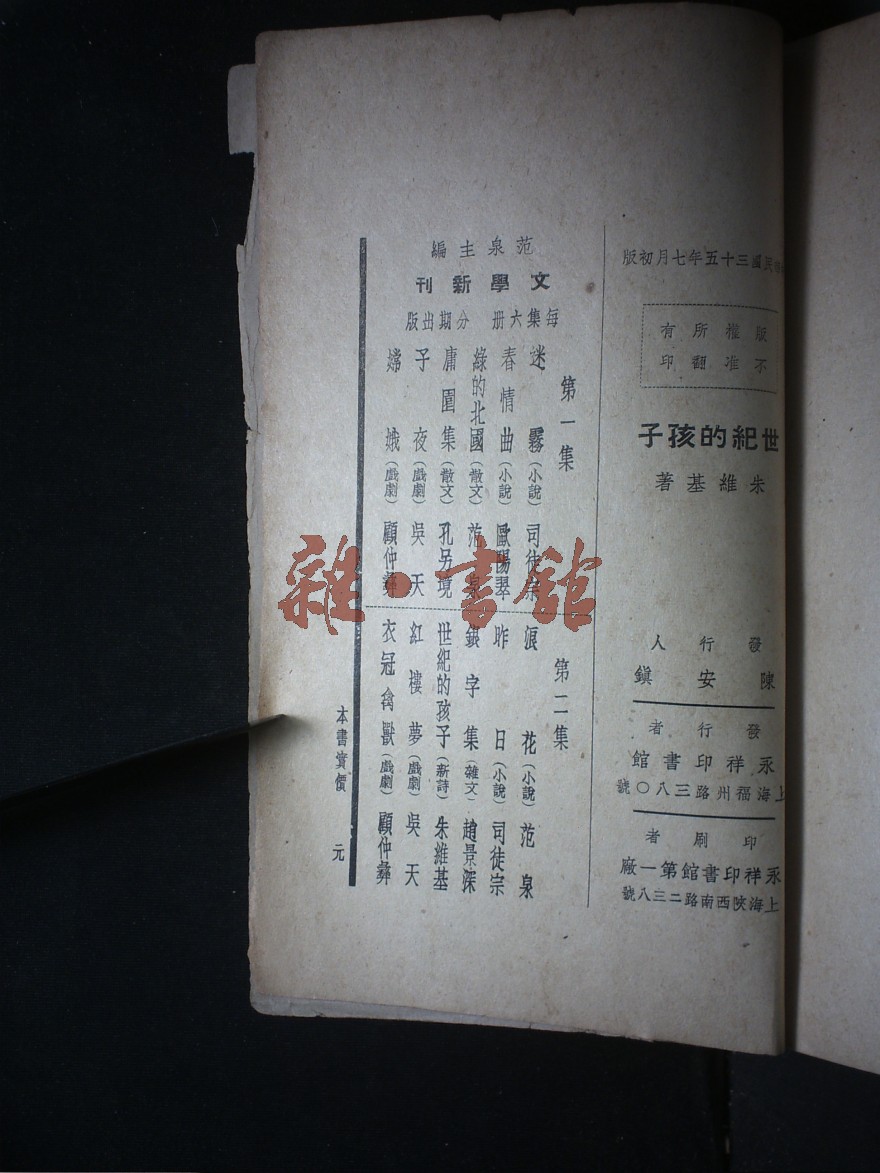 民國三十五年七月初版
版權所有
不准翻印
世紀的孩子
朱維基著
發行人
陳安鎮
發行者
永祥印書館
上海福州路三八〇號
印刷者
永祥印書館第一廠
上海陝西南路二三八號
范泉主編
文學新刊
每集六册 分期出版
第一集
迷霧(小說) 司徒宗
春情曲(小說) 歐陽翠
綠的北國(散文) 范泉
庸園集(散文) 孔另境
子夜(戲劇) 吳天
嫦娥(戲劇) 顧仲彝
第二集
浪花(小說) 范泉
昨日(小說) 司徒宗
銀字集(雜文) 趙景深
世紀的孩子(新詩) 朱維基
紅樓夢(戲劇) 吳天
衣冠禽獸(戲劇) 顧仲彝
本書實價 元
雜·書館